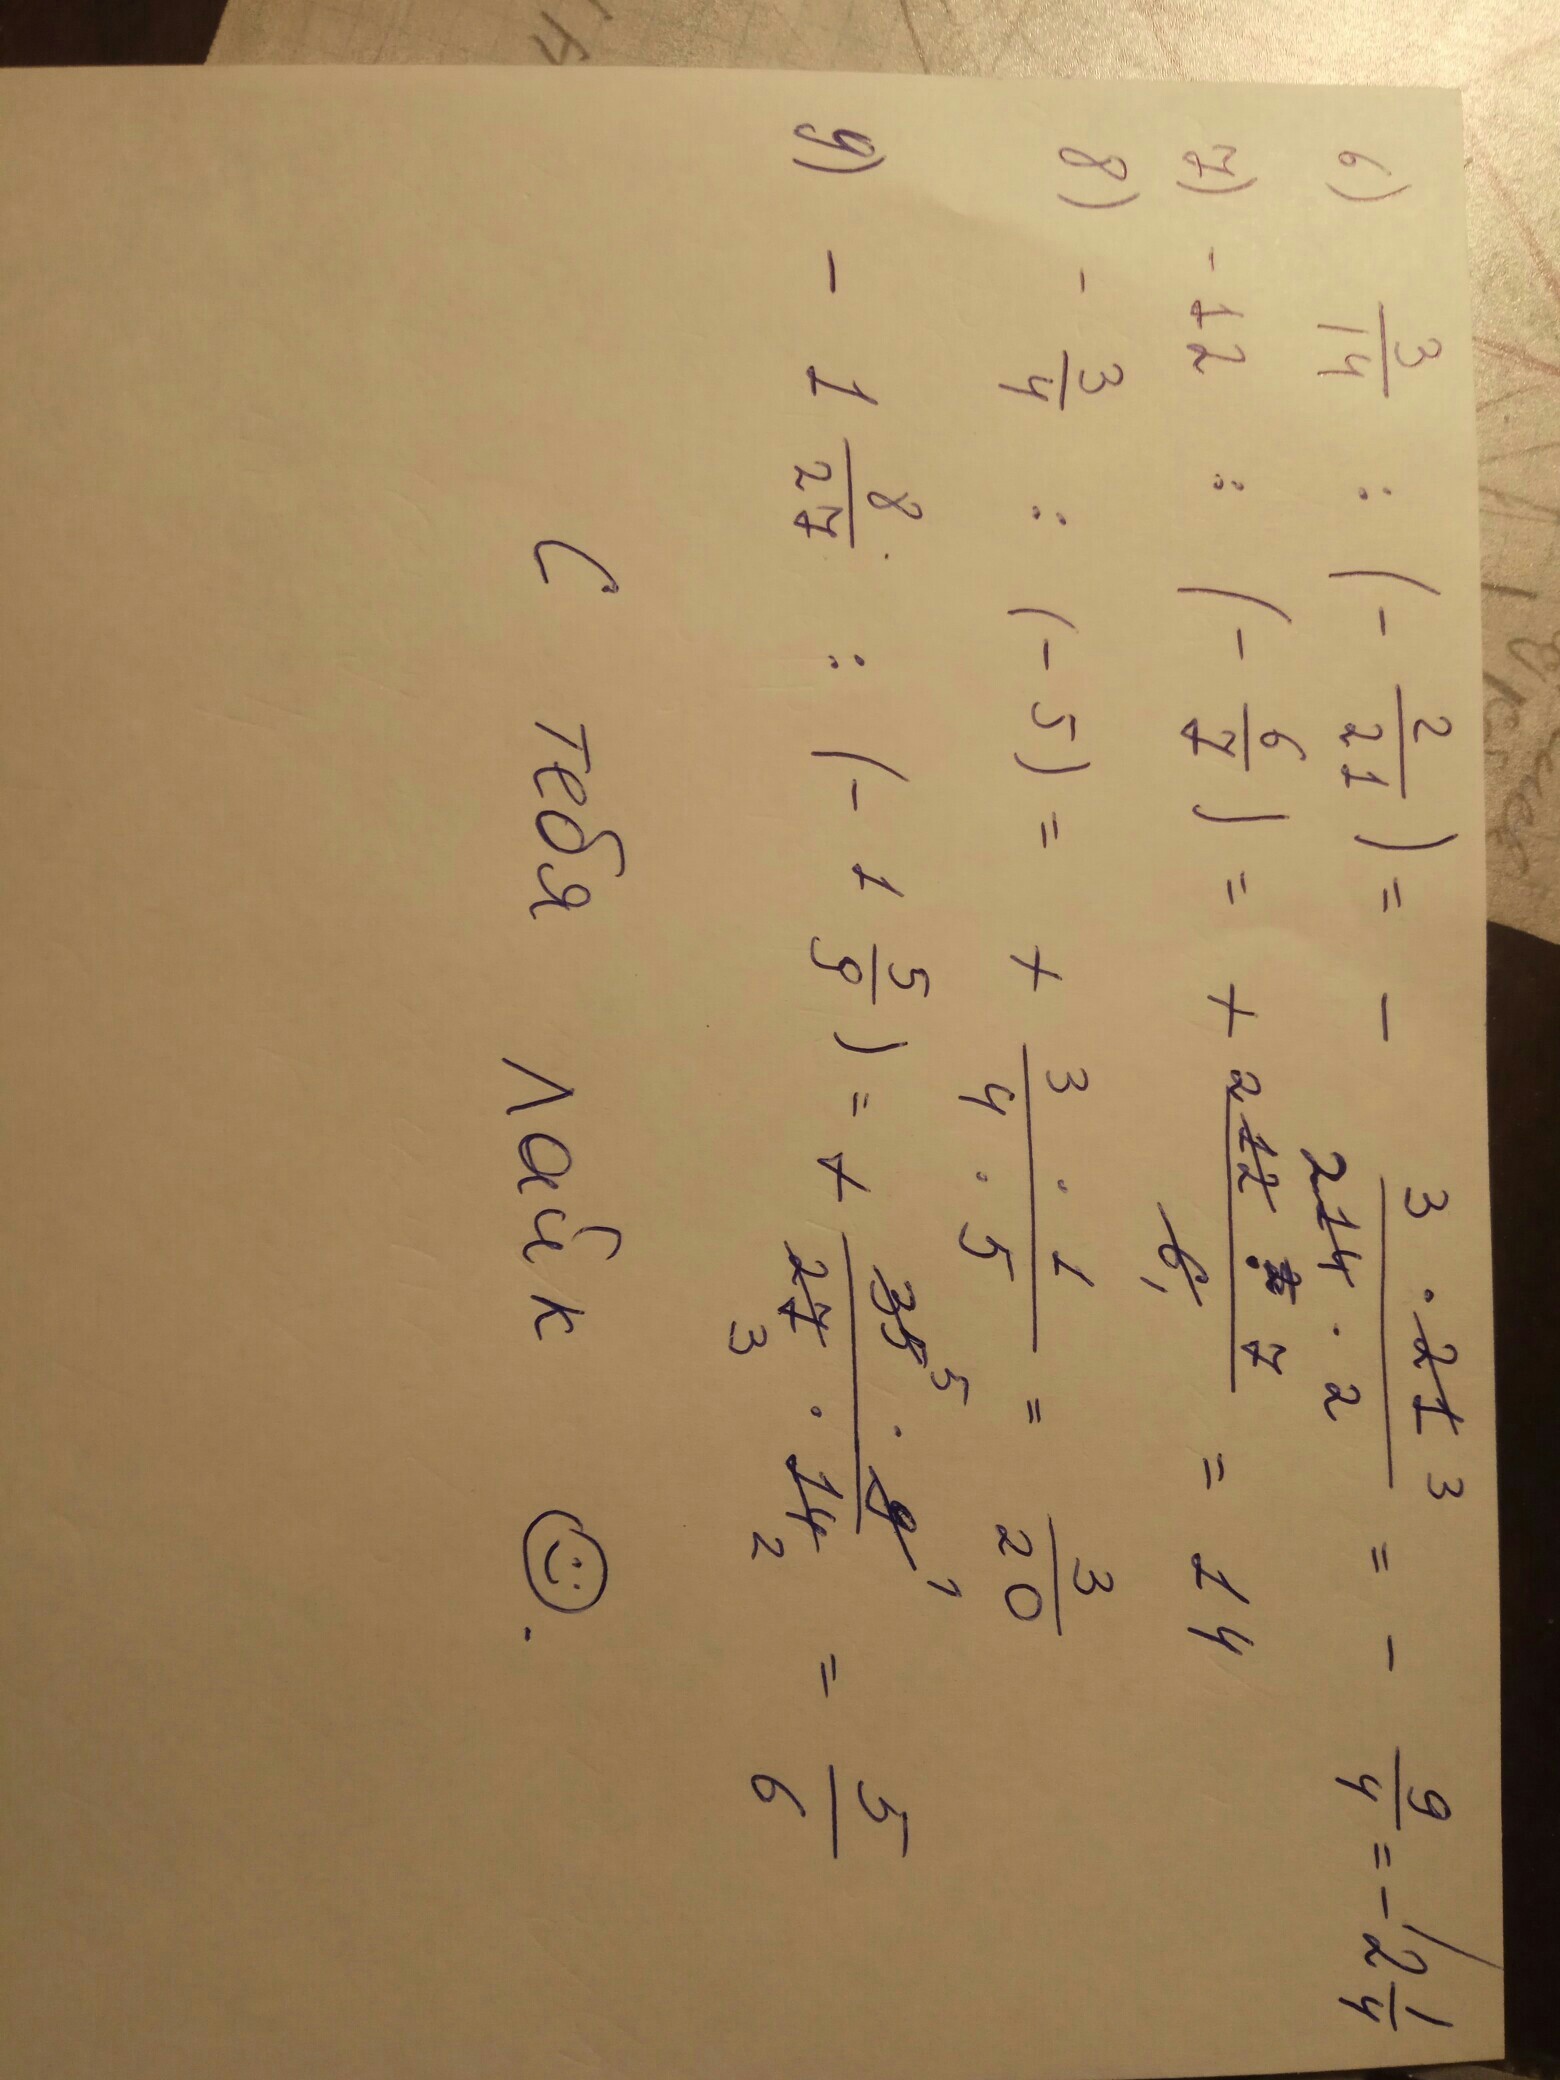 6) 3/14 : (- 2/21) = - 3 · 21 3 / 2 14 · 2 = - 9/4 = - 2 1/4
7) - 12 : (- 6/7) = + 2 12 · 7 / 6 1 = 14
8) - 3/4 : (- 5) = + 3 · 1 / 4 · 5 = 3/20
9) - 1 8/27 : (- 1 5/9) = + 35 5 · 9 1 / 27 3 · 14 2 = 5/6
С тебя лайк ☺.